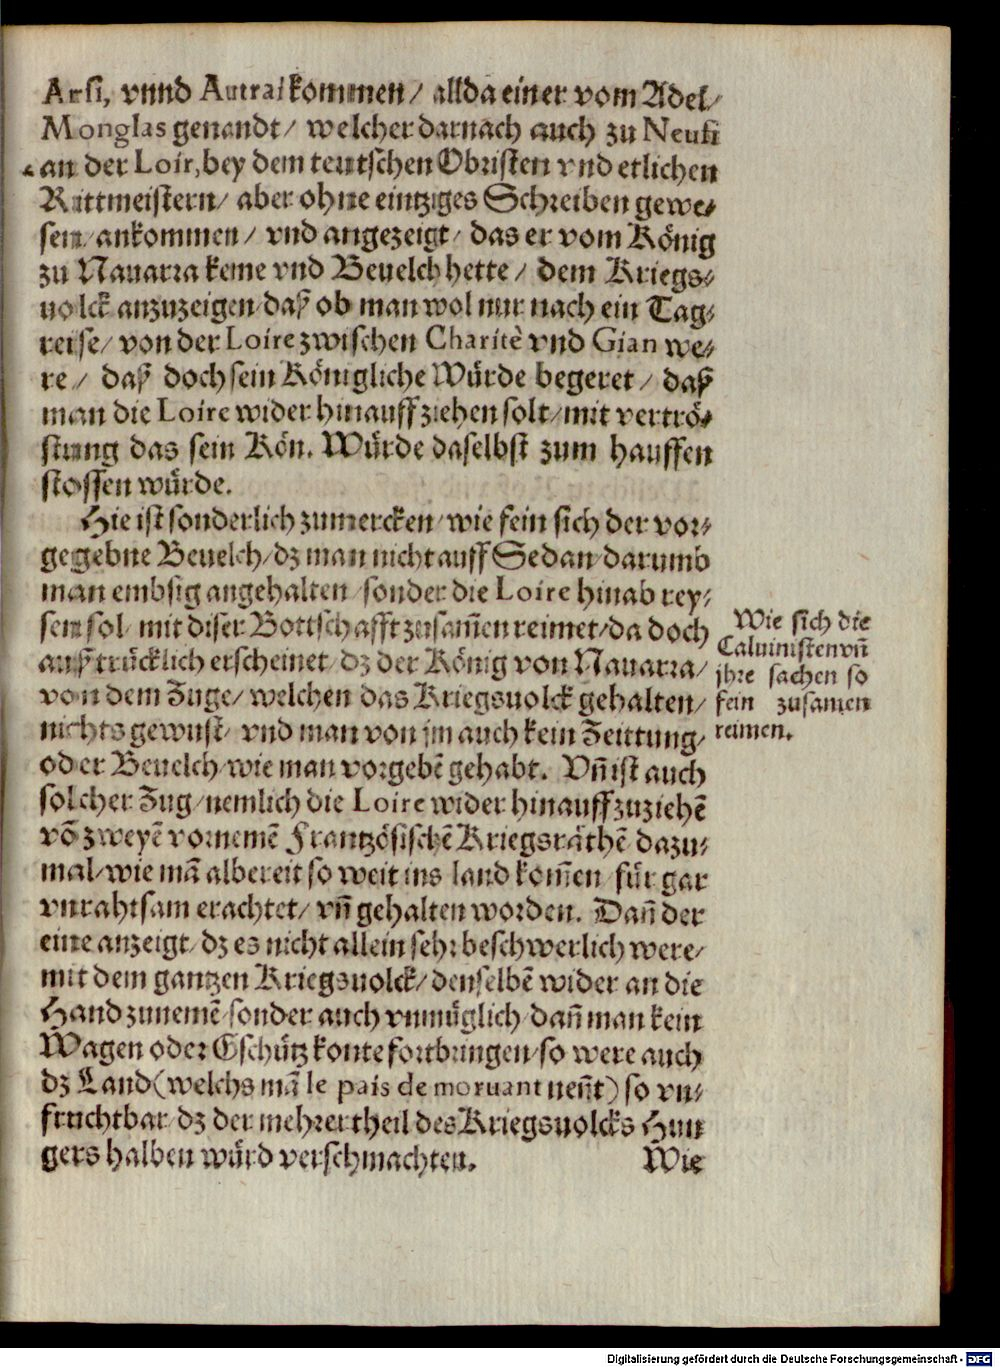 Arsi, vnnd Autrai kommen/ allda einer vom Adel/
Monglas genandt/ welcher darnach auch zu Neufi
an der Loir, bey dem teutschen Obristen vnd etlichen
Rittmeistern/ aber ohne eintziges Schreiben gewe⸗
sen/ ankommen/ vnd angezeigt/ das er vom König
zu Nauarra keine vnd Beuelch hette/ dem Kriegs⸗
uolck anzuzeigen/ daß ob man wol nur nach ein Tag⸗
reise/ von der Loire zwischen Charitè vnd Gian we⸗
re/ daß doch sein Königliche Würde begeret/ daß
man die Loire wider hinauff ziehen solt/ mit vertrö⸗
stung das sein Kön. Würde daselbst zum hauffen
stossen würde.
Hie ist sonderlich zumercken/ wie fein sich der vor⸗
gegebne Beuelch/ dz man nicht auff Sedan/ darumb
man embsig angehalten/ sonder die Loire hinab rey⸗
sen sol/ mit diser Bottschafft zusam̃en reimet/ da doch
außtrücklich erscheinet/ dz der König von Nauarra/
von dem Zuge/ welchen das Kriegsuolck gehalten/
nichts gewust/ vnd man von jm auch kein Zeittung/
oder Beuelch/ wie man vorgebẽ gehabt. Vñ ist auch
solcher Zug/ nemlich die Loire wider hinauffzuziehẽ
võ zweyẽ vornemẽ Frantzösischẽ Kriegsräthẽ dazu⸗
mal/ wie mã albereit so weit ins land kom̃en/ für gar
vnrahtsam erachtet/ vñ gehalten worden. Dañ der
eine anzeigt/ dz es nicht allein sehr beschwerlich were/
mit dem gantzen Kriegsuolck/ denselbẽ wider an die
Hand zunemẽ/ sonder auch vnmüglich/ dañ man kein
Wagen oder Gschütz konte fortbringen/ so were auch
dz Land (welchs mã le pais de moruant neñt) so vn⸗
fruchtbar/ dz der mehrertheil des Kriegsuolcks Hun
gers halben würd verschmachten.
Wie
Wie sich die
Caluinisten vñ
jhre sachen so
fein zusamen
reimen.
Digitalisierung gefördert durch die Deutsche Forschungsgemeinschaft - DFG